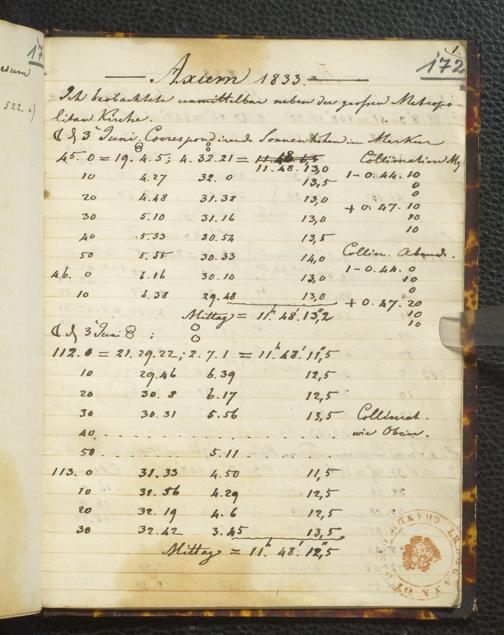 172
Axum 1833.
Ich beobachtete unmittelbar neben der grossen Metropo
litan Kirche.
3 Juni. Correspondirende Sonnenhöhen im Merkur
45. 0 = 19. 4. 5; 4. 32. 21 = 11. 48 Collimation Mg
11. 48. 13,0
10 4.27 32. 0 13,5 1 - 0.44. 10
0
20 4.48 31.38 13,0 0
+ 0. 47. 10
30 5.10 31.16 13,0 10
10
40 5.33 30.54 13,5
50 5.55 30.33 14,0 Collim. Abends.
46. 0 6.16 30.10 13,0 1 - 0.44. 0
10
0
10 6.38 29.48 13,0 + 0.47. 20
Mittag = 11h. 48' 13",2 10
10
3 Juni
112. 0 = 21. 29. 22; 2. 7. 1 = 11h. 48' 11",5
10 29.46 6.39 12,5
20 30. 8 6.17 12,5
30 30.31 5.56 13,5 Collimat.
40 wie Oben.
50 5.11
113. 0 31.33 4.50 11,5
10 31.56 4.29 12,5
20 32.19 4. 6 12,5
30 32.42 3.45 13,5
Mittag = 11h. 48' 12",5